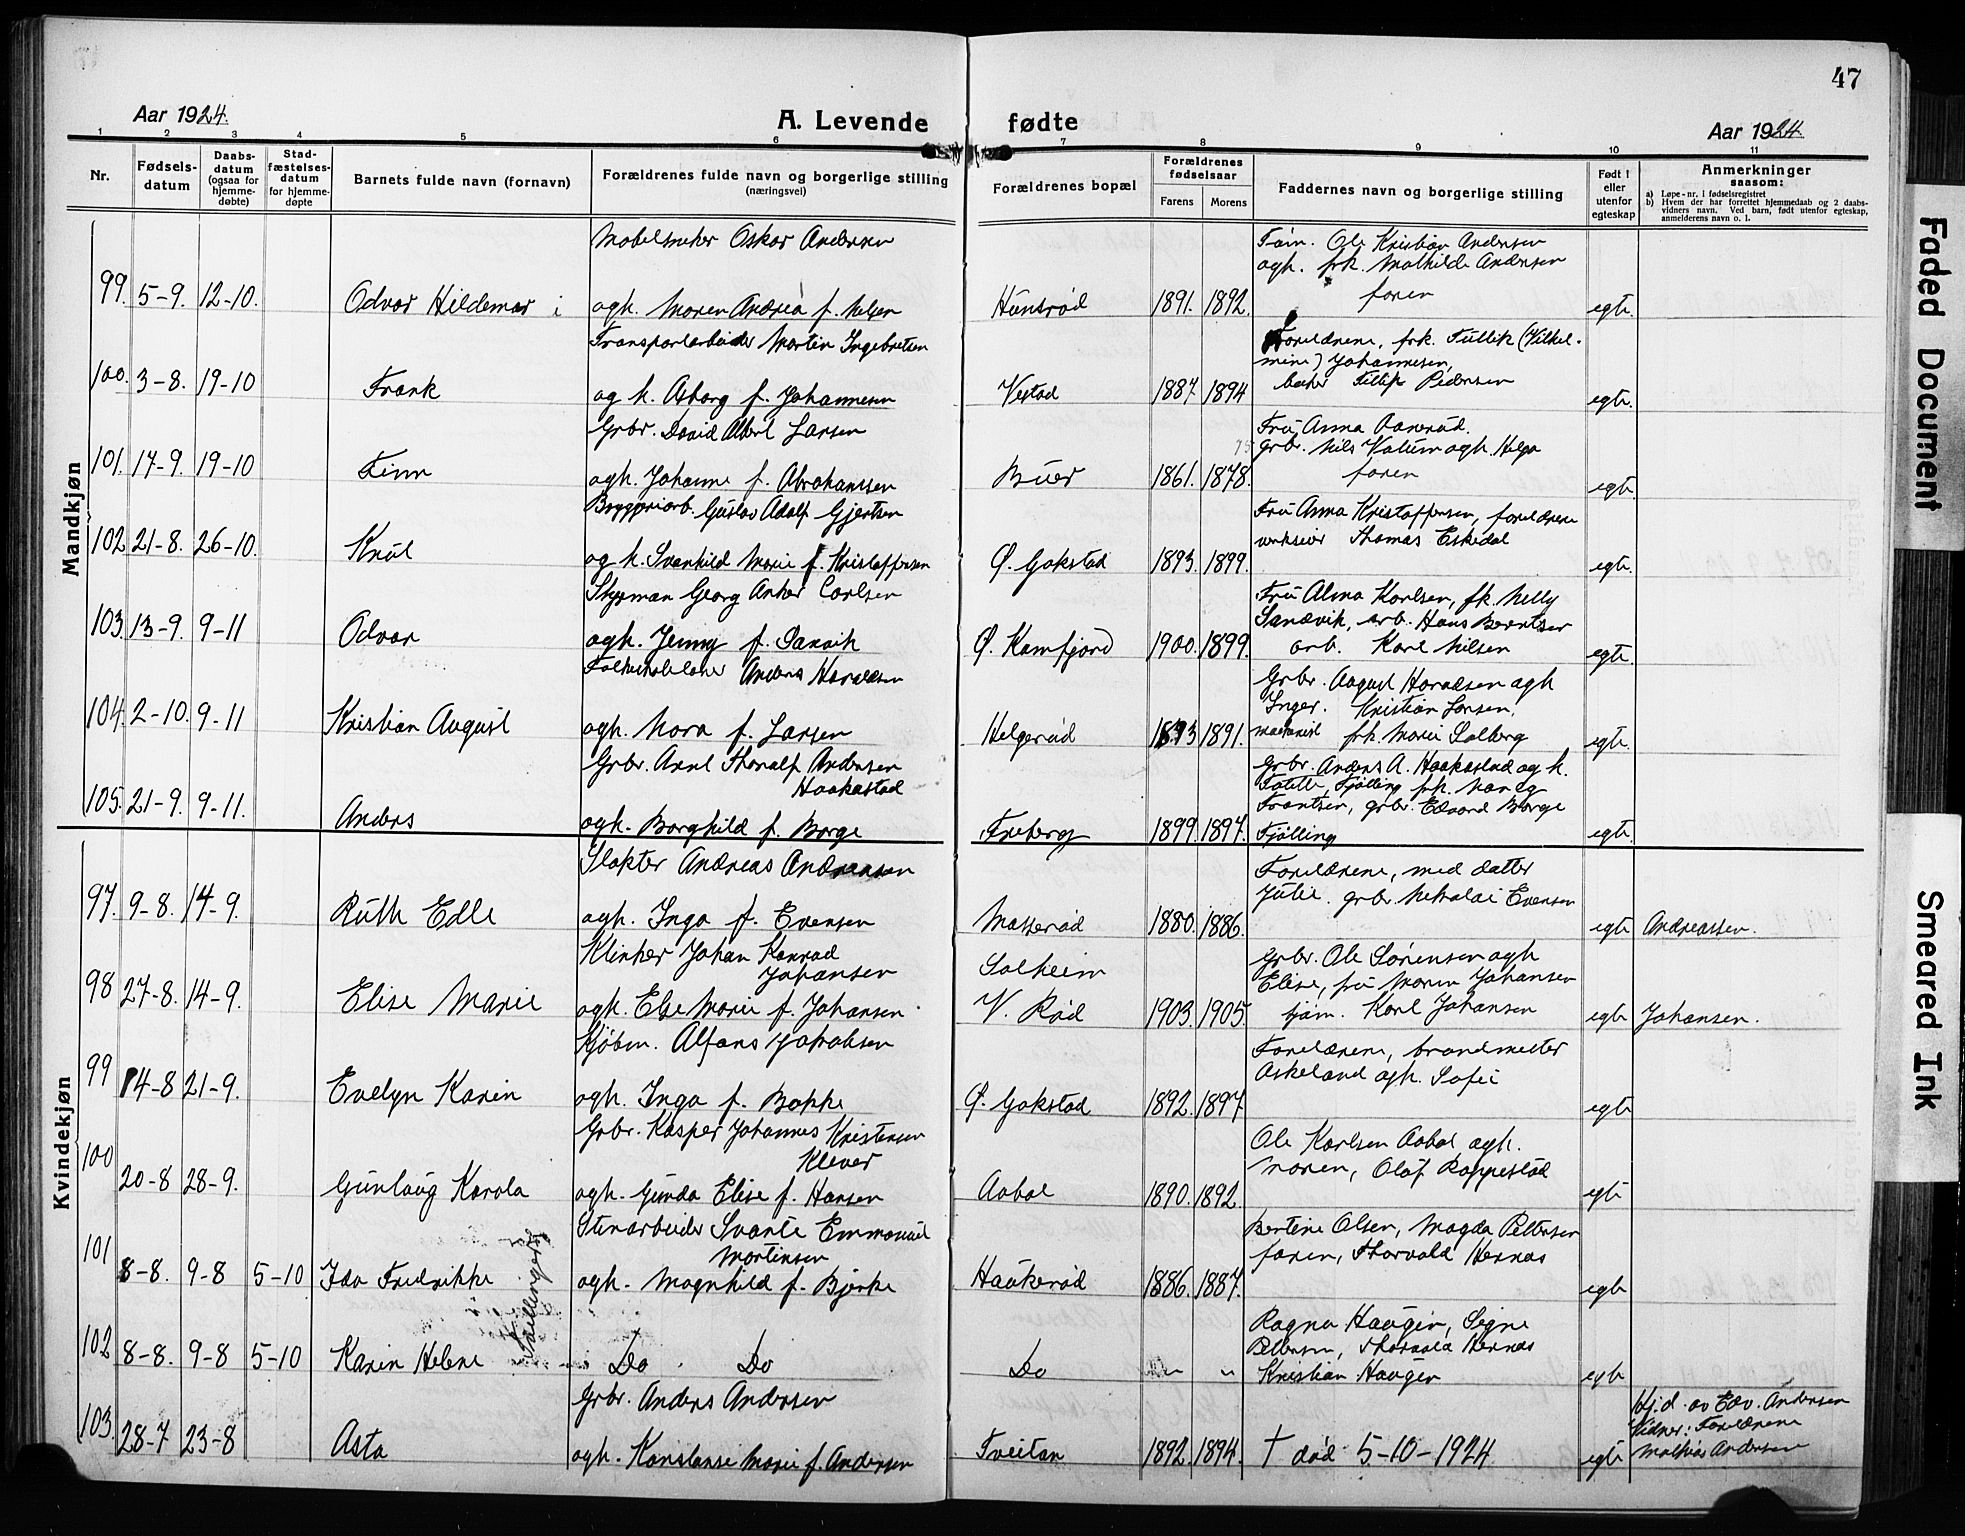 47
Aar 1924.
A. Levende fødte
Aar 1924
1 2 3 4 5 6 7 8 9 10 11
Nr.
Fødsels-
datum
Daabs-
datum
(ogsaa for
hjemme-
døbte)
Stad-
fæstelses-
datum
for hjemme-
døpte
Barnets fulde navn (fornavn)
Forældrenes fulde navn og borgerlige stilling
(næringsvei)
Forældrenes bopæl
Forældrenes
fødselsaar
Farens Morens
Faddernes navn og borgerlige stilling
Født i
eller
utenfor
egteskap
Anmerkninger
saasom:
a) Løpe-nr. i fødselsregistret
b) Hvem der har forrettet hjemmedaab og 2 daabs-
vidners navn. Ved barn, født utenfor egteskap,
anmelderens navn o. l.
Mandkjøn
Møbelsnekker Oskar Andersen
99. 5-9. 12-10. Odvar Hildemar i
ogh. Maren Andrea f. Nilsen
Hunsrød 1891. 1892.
Tøm. Ole Kristian Andersen
ogh. frk. Mathilde Andersen
faren
egte.
Transportarbeider Martin Ingebretsen
100. 3-8. 19-10 Frank
og h. Asborg f. Johannesen
Vestad 1887. 1894
Forældrene, frk. Tullik (Vilhel-
mine) Johannesen,
baker Fillip Pedersen
egte.
Grbr. David Albert Larsen
101. 17-9. 19-10 Finn
ogh. Johanne f. Abrahamsen
Buer 1861. 1878.
Fru Anna Aanerud.
grbr. Nils Valum ogh. Helga
faren
egte
Bryggeriarb. Gustav Adolf Gjertsen
102 21-8. 26-10. Knut
og h. Svanhild Marie f. Kristoffersen
Ø. Gokstad 1893. 1899.
Fru Anna Kristoffersen, forældrene
verkseier Thomas Eskedal
egte.
Styrman Georg Anker Carlsen
103. 13-9. 9-11 Odvar
ogh. Jenny f. Sanvik
Ø. Kamfjord 1900. 1899.
Fru Alma Karlsen, frk. Nelly
Sandvik, arb. Hans Berntsen
arb. Karl Nilsen
egte.
Folkeskolelærer Anders Haraldsen
104. 2-10. 9-11 Kristian August
ogh. Nora f. Larsen
Helgerød 1893 1891.
Grbr. August Haraldsen ogh
Inger. Kristian Larsen,
maskinist frk. Marie Solberg
egte.
Grbr. Arnt Thoralf Andersen
Haakestad
105. 21-9. 9-11. Anders
ogh. Borghild f. Borge
Freberg 1899. 1897.
Grbr. Anders A. Haakestad og h.
Tolette, Tjølling frk. Nandy
Frantsen, grbr. Edvard Borge
Tjølling
egte.
Kvindekjøn
Slakter Andreas Andreassen
97. 9-8. 14-9. Ruth Edle
ogh. Inga f. Evensen
Massерød 1880. 1886.
Forældrene, med datter
Julie. grbr. Nikolai Evensen
egte Andreassen.
Klinker Johan Konrad
Johansen
98 27-8. 14-9. Elise Marie
ogh. Else Marie f. Johansen
Solheim
V. Rød 1903. 1905.
Grbr. Ole Sørensen ogh
Elise, fru Maren Johansen
tjøm. Karl Johansen
egte Johansen.
Kjøbm. Alfons Jakobsen
99 14-8 21-9. Evelyn Karin
ogh. Inga f. Bakke
Ø. Gokstad 1892. 1897
Forældrene, brandmester
Askeland ogh. Sofie
egte
Grbr. Kasper Johannes Kristensen
Klever
100 20-8 28-9. Gunlaug Karola
ogh. Gunda Elise f. Hansen
Aabol 1890. 1892.
Ole Karlsen Aabol ogh.
Maren, Olaf Rappestad
egte
Stenarbeider Svante Emmanuel
Mortensen
101 8-8. 9-8 5-10 Ida Fredrikke
Tvillinger
ogh. Magnhild f. Bjerke
Haukerød 1886. 1887.
Bertine Olsen, Magda Pettersen
faren, Thorvald Hernæs
egte
102 8-8. 9-8 5-10 Karin Helene
Do Do
Do " "
Ragna Haugen, Signe
Pettersen, Thorvald Hernæs
Kristian Haugen
egte
Grbr. Anders Andersen
103. 28-7 23-8 Asta
ogh. Konstanse Marie f. Andersen
Tveitan 1892. 1894.
† død 5-10-1924
egte
Hj.d. av Edv. Andersen
Vidner: Forældrene
Mathias Andersen
Faded Document
Smeared Ink